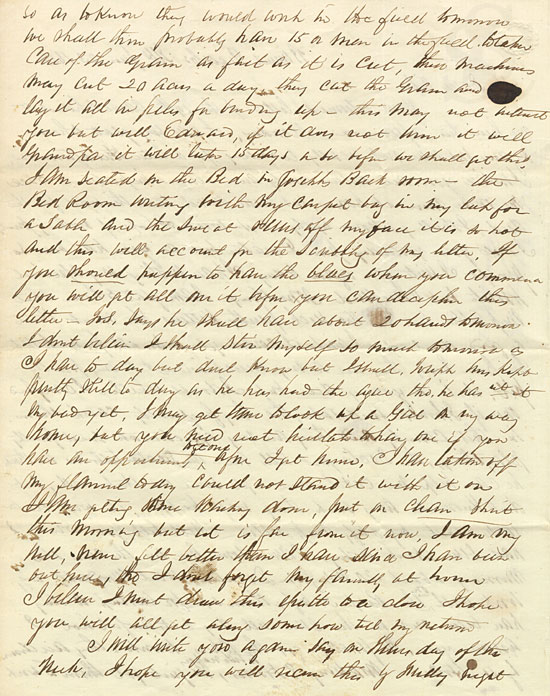 so as to know they would work in the field tomorrow
we shall then probably have 15 or men in the field to take
care of the Grain as fast as it is cut, these machines
may cut 20 acres a day they cut the Grain and
lay it all in piles for binding up - this may not interest
you but will Edward, if it does not him it will
Grandpa it will take 15 days or so before we shall get this
I am seated on the Bed in Josephs Back room - the
Bed Room writing with my carpet bag in my lap for
a table and the sweat runs off my face it is so hot
and this will account for the scribbling of my letter, If
you should happen to have the blues when you commence
you will get all over it before you can decipher this
letter - Jos, says he shall have about 20 hands tomorrow
I dont believe I shall stir myself so much tomorrow as
I have to day but dont know but I shall, Joseph has kept
pretty still to day as he has had the ague tho, he has it
my bed yet, I may get time to look up a Girl on my way
home, but you need not hesitate to hire one if you
have an opportunity before I get home, I have taken off
my flannel today could not stand it with it on
I am getting some washing done, put on clean shirt
this morning but it is far from it now, I am very
well, never felt better than I have since I have been
out here, tho I dont forget my family at home
I believe I must draw this epistle to a close I hope
you will all get along some how till my return
I will write you again say on Thursday of this
week, I hope you will receive this by night